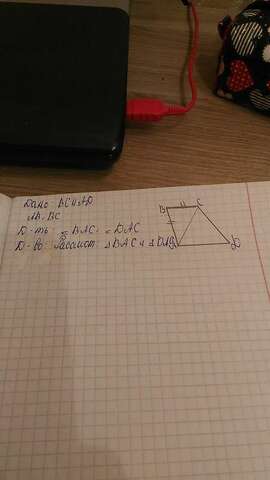 Дано: BC ∥ AD
AB = BC
Д-ть: ∠BAC = ∠DAC
Д-во: Рассмот: △BAC и △DAC
B C
A D